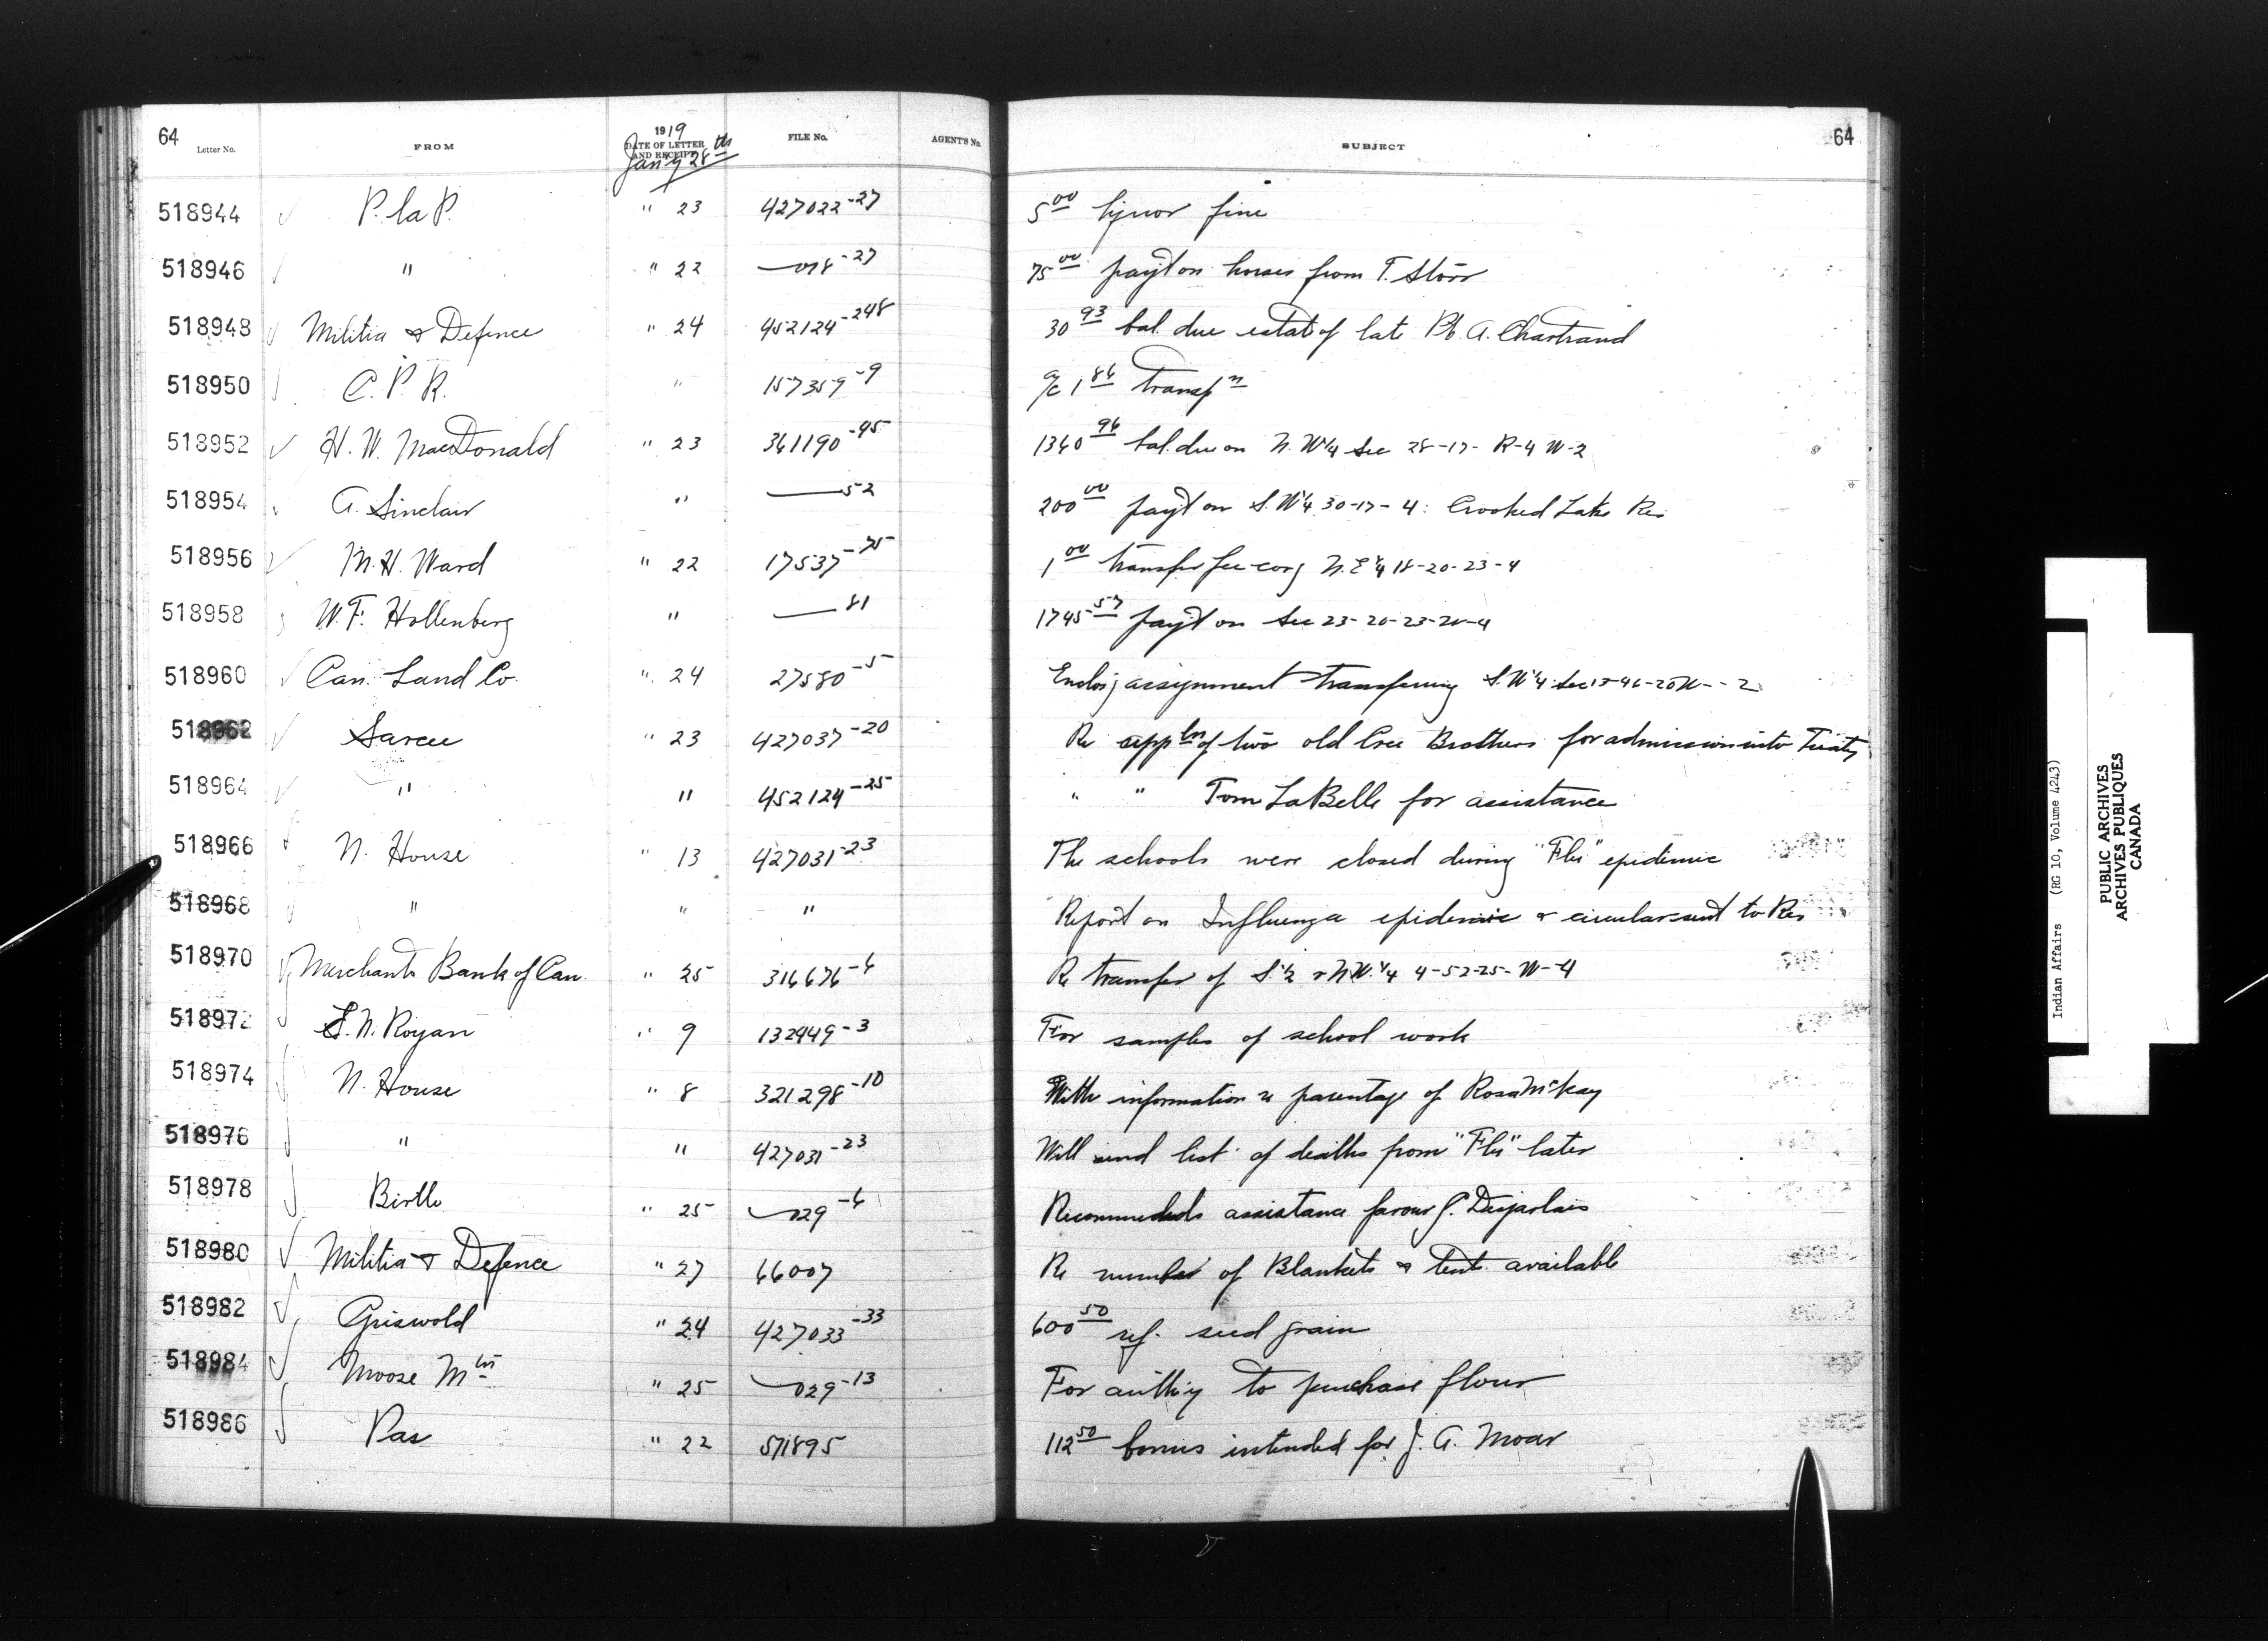 64 Letter No. FROM 1919 DATE OF LETTER AND RECEIPT Jany 28th FILE No. AGENT'S No. SUBJECT 64
518944 P. la P. " 23 427022-27 5 00 liquor fine
518946 " " 22 —018-27 75 00 payt on horses from T. Storr
518948 Militia & Defence " 24 452124-248 30 93 bal. due estate of late Pt. A. Chartrand
518950 C. P. R. " 157359-9 a/c 1 86 transpn
518952 H. W. MacDonald " 23 361190-45 1360 96 bal. due on N.W¼ Sec 28-17- R-4 W-2
518954 A. Sinclair " —52 200 00 payt on S.W¼ 30-17-4: Crooked Lake Res
518956 M. H. Ward " 22 17537-75 1 00 transfer fee covg N.E¼ 18-20-23-4
518958 W. F. Hollenberg " —81 1745 57 payt on Sec 23-20-23-W-4
518960 Can. Land Co. " 24 27580-5 Enclosg assignment transferring S.W¼ Sec 15-46-20 W--2
518962 Sarcee " 23 427037-20 Re appln of two old Cree Brothers for admission into Treaty
518964 " " 452124-25 " " Tom LaBelle for assistance
518966 N. House " 13 427031-23 The schools were closed during "Flu" epidemic
518968 " " " Report on Influenza epidemic & circular sent to Res
518970 Merchants Bank of Can. " 25 316676-6 Re transfer of S.½ & N.W.¼ 4-52-25-W-4
518972 S. N. Royan " 9 132949-3 For samples of school work
518974 N. House " 8 321298-10 With information re parentage of Rosa McKay
518976 " " 427031-23 Will send list of deaths from "Flu" later
518978 Birtle " 25 —029-6 Recommends assistance favour P. Desjarlais
518980 Militia & Defence " 27 66007 Re number of Blankets & tents available
518982 Griswold " 24 427033-33 600 50 ref. seed grain
518984 Moose Mtn " 25 —029-13 For authy to purchase flour
518986 Pas " 22 571895 112 50 bonus intended for J. A. Moar
Indian Affairs (RG 10, Volume 4243)
PUBLIC ARCHIVES
ARCHIVES PUBLIQUES
CANADA